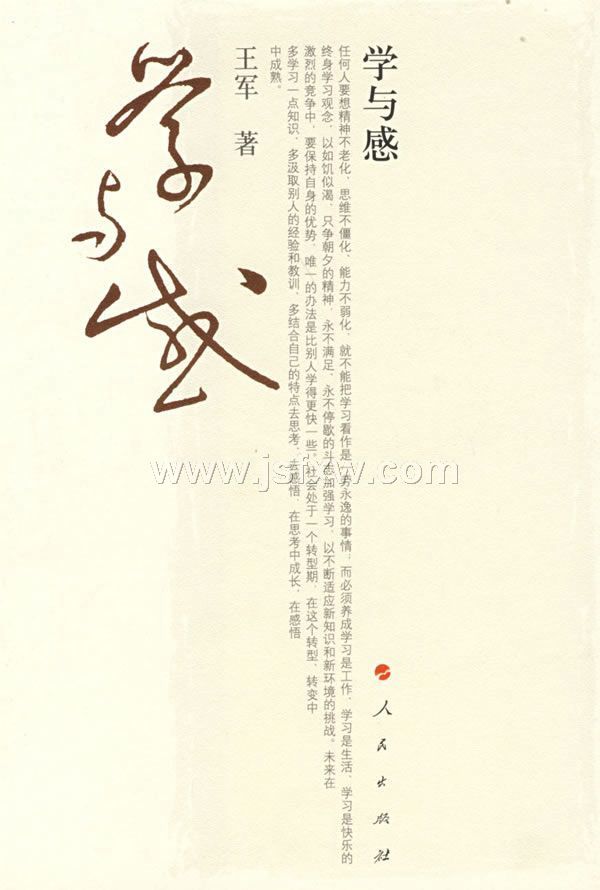 学与感
任何人要想精神不老化、思维不僵化、能力不弱化，就不能把学习看作是一劳永逸的事情；而必须养成学习是工作、学习是生活、学习是快乐的
终身学习观念，以如饥似渴、只争朝夕的精神，永不满足、永不停歇的斗志加强学习，以不断适应新知识和新环境的挑战。未来在
激烈的竞争中，要保持自身的优势，唯一的办法是比别人学得更快一些。社会处于一个转型期，在这个转型、转变中
多学习一点知识、多汲取别人的经验和教训、多结合自己的特点去思考、去感悟，在思考中成长，在感悟
中成熟。
王军 著
学与感
人民出版社
www.jsfxw.com